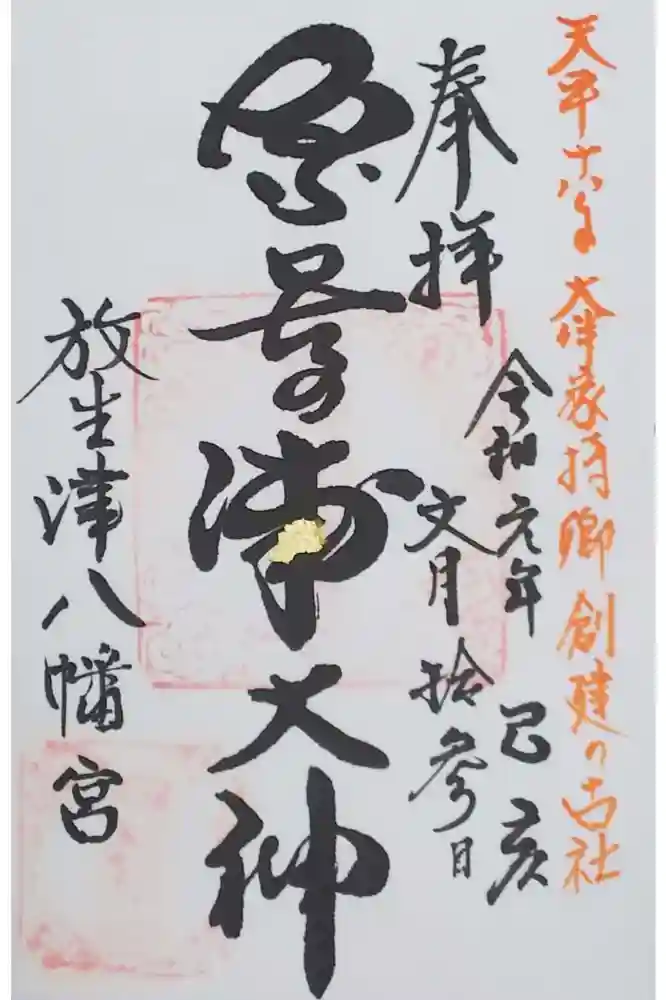 天平十八年 大伴家持卿創建の古社
奉拝
令和元年 己亥
文月拾参日
奈呉浦大神
放生津八幡宮